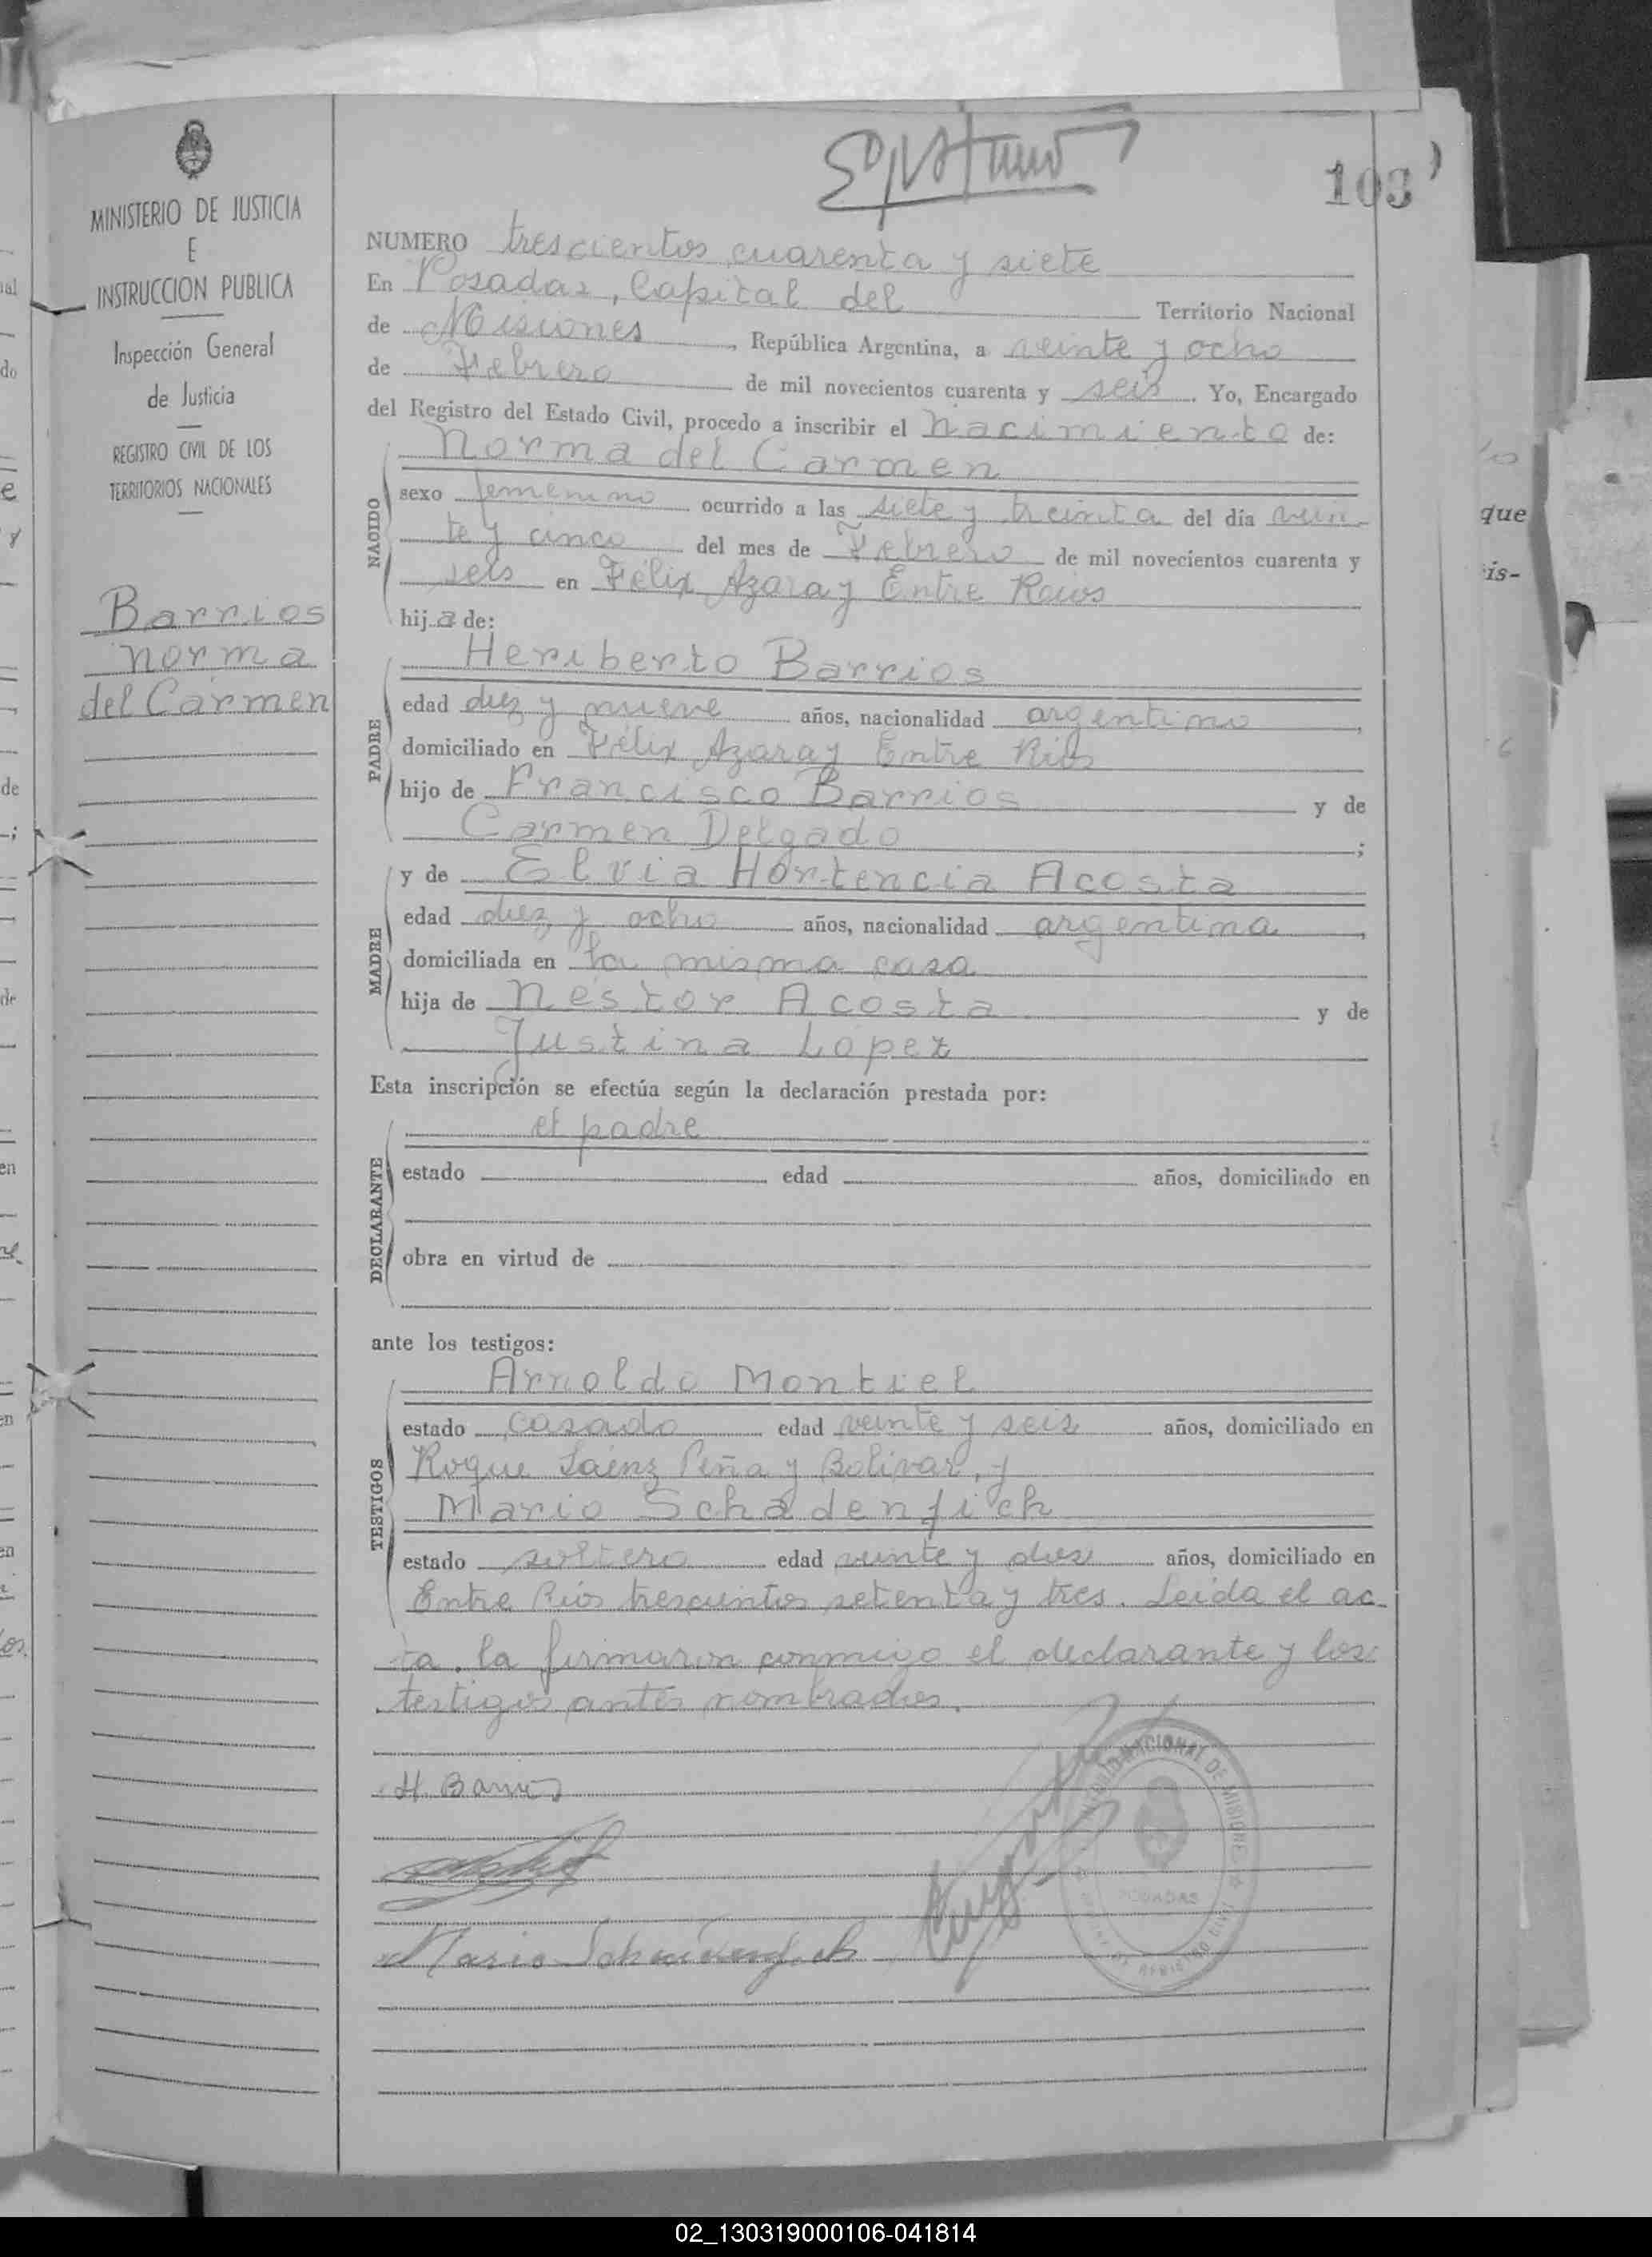 103
MINISTERIO DE JUSTICIA
E
INSTRUCCION PUBLICA
Inspección General
de Justicia
REGISTRO CIVIL DE LOS
TERRITORIOS NACIONALES
Barrios
Norma
del Carmen
NUMERO trescientos cuarenta y siete
En Posadas, Capital del Territorio Nacional
de Misiones, República Argentina, a veinte y ocho
de Febrero de mil novecientos cuarenta y seis. Yo, Encargado
del Registro del Estado Civil, procedo a inscribir el nacimiento de:
Norma del Carmen
NACIDO
sexo femenino ocurrido a las siete y treinta del día vein-
te y cinco del mes de Febrero de mil novecientos cuarenta y
seis en Félix Azara y Entre Rios
hija de:
Heriberto Barrios
PADRE
edad diez y nueve años, nacionalidad argentino,
domiciliado en Félix Azara y Entre Rios
hijo de Francisco Barrios y de
Carmen Delgado;
y de Elvia Hortencia Acosta
MADRE
edad diez y ocho años, nacionalidad argentina,
domiciliada en la misma casa
hija de Nestor Acosta y de
Justina Lopez
Esta inscripción se efectúa según la declaración prestada por:
el padre
DECLARANTE
estado edad años, domiciliado en
obra en virtud de
ante los testigos:
Arnoldo Montiel
TESTIGOS
estado casado edad veinte y seis años, domiciliado en
Roque Sáenz Peña y Bolivar, y
Mario Schadenfich
estado soltero edad veinte y dos años, domiciliado en
Entre Rios trescientos setenta y tres. Leida el ac-
ta, la firmaron conmigo el declarante y los
testigos antes nombrados.
H. Barrios
Mario
NACIONAL DE MISIONES
POSADAS
que
is-
02_130319000106-041814